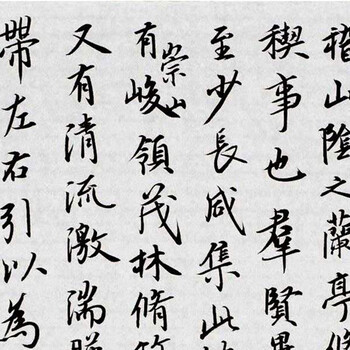 稽山陰之蘭亭脩
稧事也羣賢畢
至少長咸集此地
有崇山峻領茂林脩竹
又有清流激湍暎
帶左右引以為